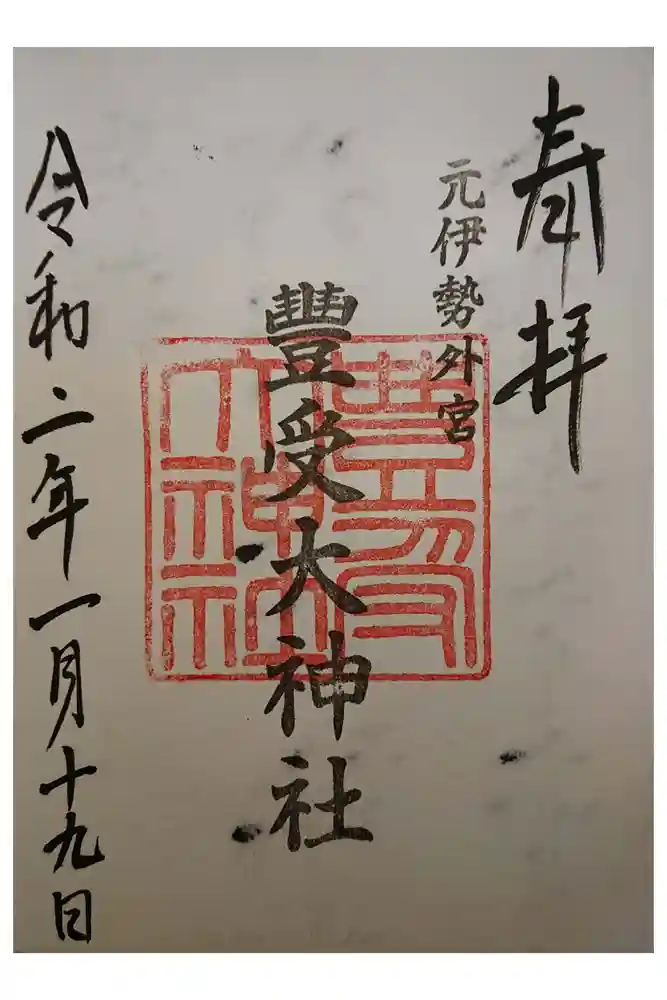 奉拝
元伊勢外宮
豐受大神社
豊受大神社
令和二年一月十九日